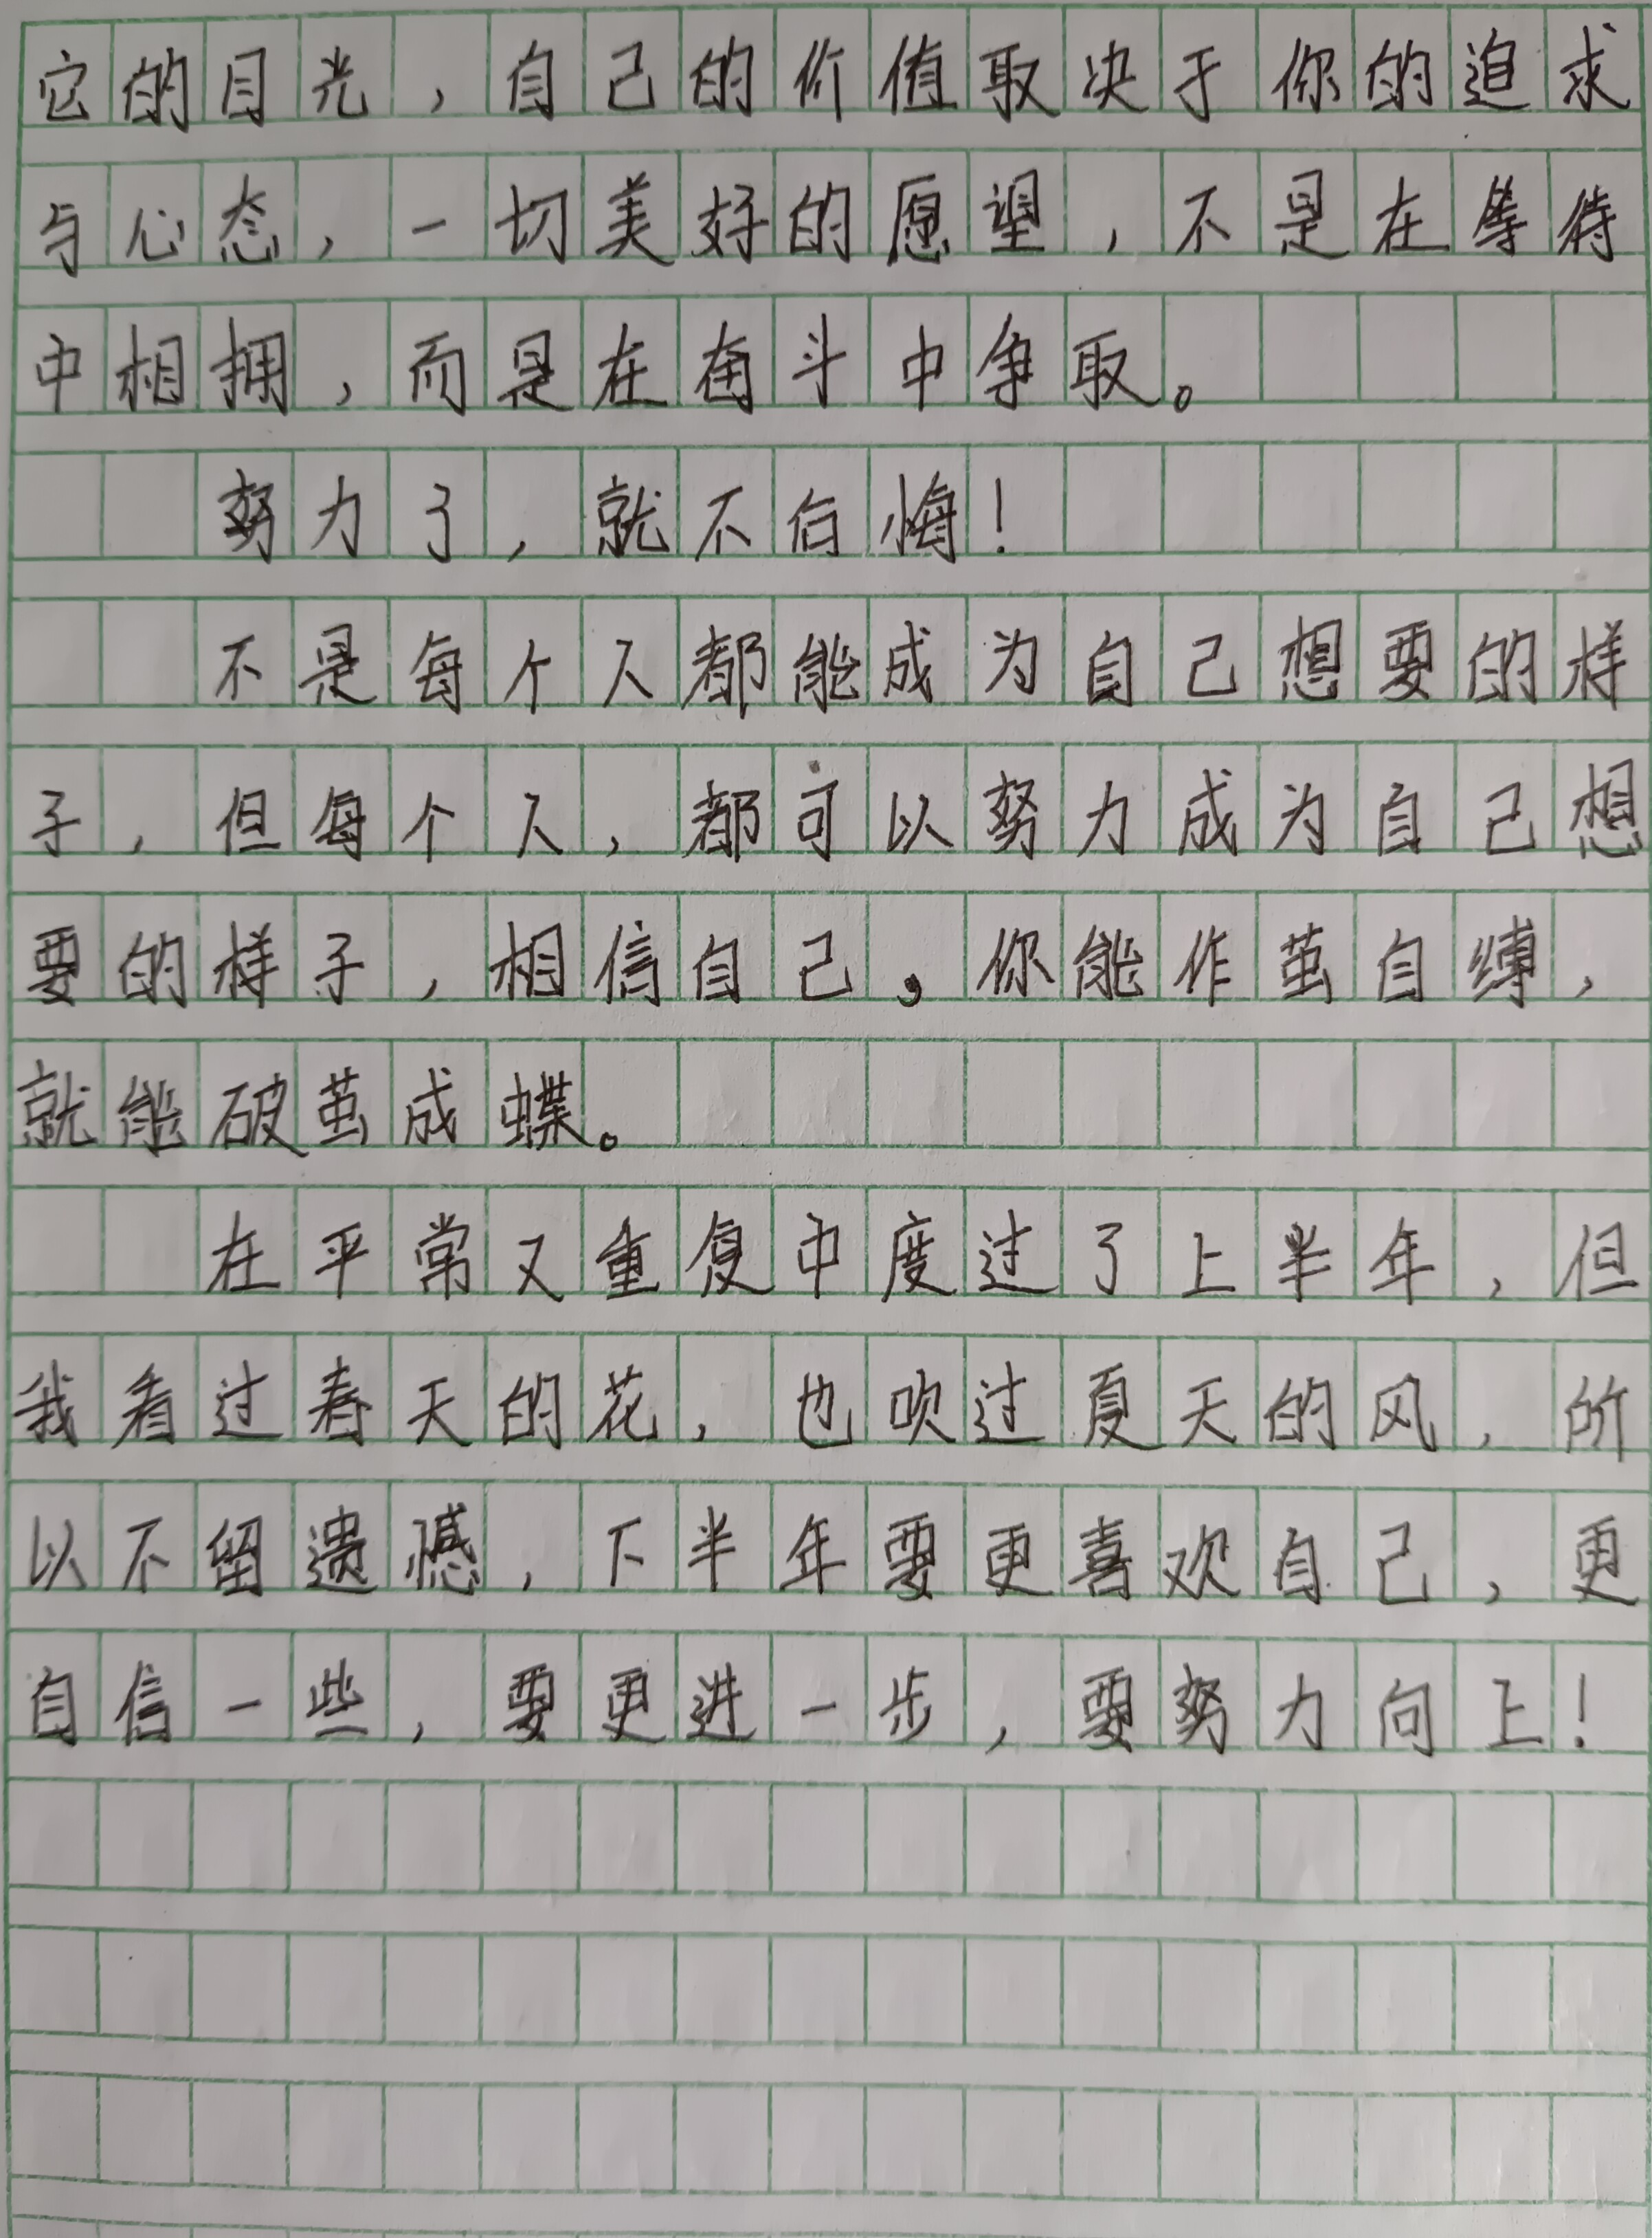 它的目光，自己的价值取决于你的追求
与心态，一切美好的愿望，不是在等待
中相拥，而是在奋斗中争取。
努力了，就不后悔！
不是每个人都能成为自己想要的样
子，但每个人，都可以努力成为自己想
要的样子，相信自己，你能作茧自缚，
就能破茧成蝶。
在平常又重复中度过了上半年，但
我看过春天的花，也吹过夏天的风，所
以不留遗憾，下半年要更喜欢自己，更
自信一些，要更进一步，要努力向上！